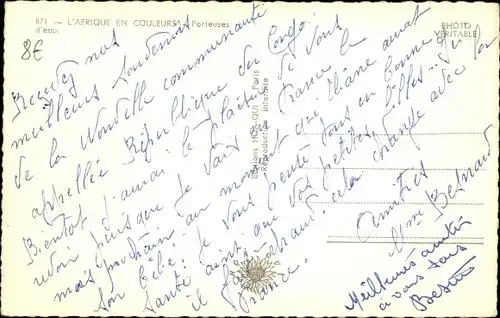 871 - "L'AFRIQUE EN COULEURS" - Porteuses
d'eau.
8€
PHOTO
VÉRITABLE
Éditions HOA-QUI Paris
Reproduction interdite
Recevez nos
meilleurs souvenirs
de la Nouvelle communauté
appellée République du Congo.
Bientôt j'aurai le plaisir de vous
revoir puisque je vais France le
mois prochain au moment
son bébé. Je vous pense tous en bonne
santé ainsi que vos petites filles
il fait chaud
France.
Amitiés
Mme Besnard
Meilleures amitiés
à vous tous